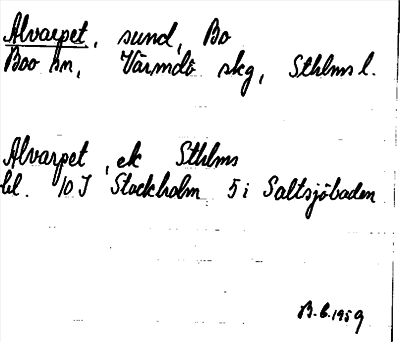 Alvarpet, sund, Bo
Boo sn, Värmdö skg, Sthlms l.
Alvarpet, ek Sthlms
bl. 10 I Stockholm 5 i Saltsjöbaden
B. E. 1959